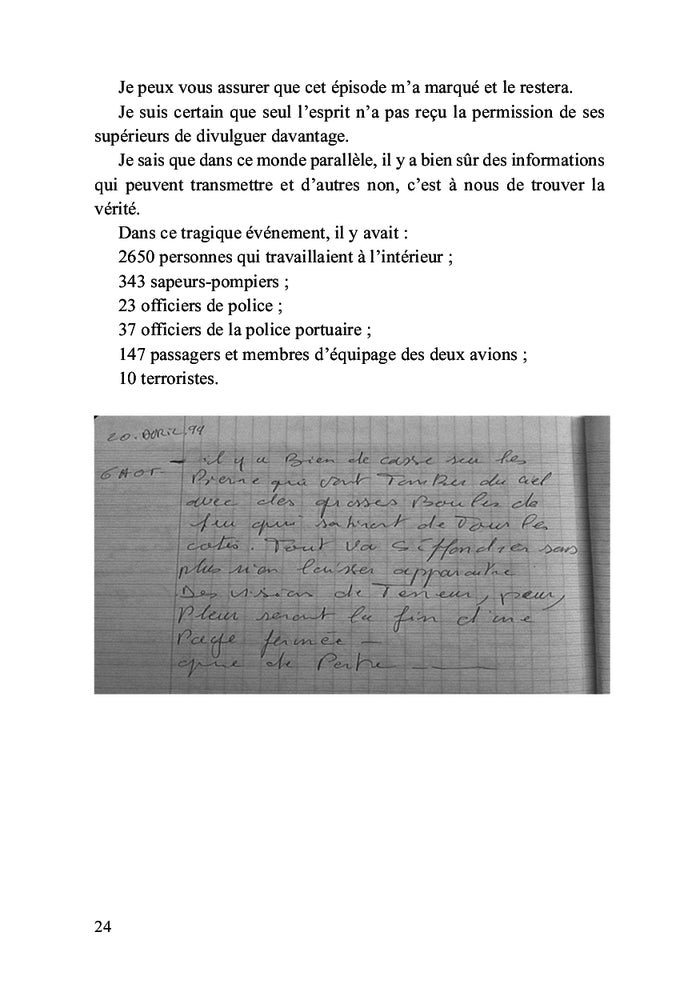 Je peux vous assurer que cet épisode m’a marqué et le restera.
Je suis certain que seul l’esprit n’a pas reçu la permission de ses
supérieurs de divulguer davantage.
Je sais que dans ce monde parallèle, il y a bien sûr des informations
qui peuvent transmettre et d’autres non, c’est à nous de trouver la
vérité.
Dans ce tragique événement, il y avait :
2650 personnes qui travaillaient à l’intérieur ;
343 sapeurs-pompiers ;
23 officiers de police ;
37 officiers de la police portuaire ;
147 passagers et membres d’équipage des deux avions ;
10 terroristes.
20. AVRIL. 99
il y a Bien de casse sur les
Pierre qui vont Tomber du ciel
avec des grosses Boules de
feu qui sortiront de Tous les
cotés. Tout va s'effondrer sans
plus rien laisser apparaitre
Des visions de Terreur, peur,
Pleur seront la fin d'une
Page fermée —
de Perte
24